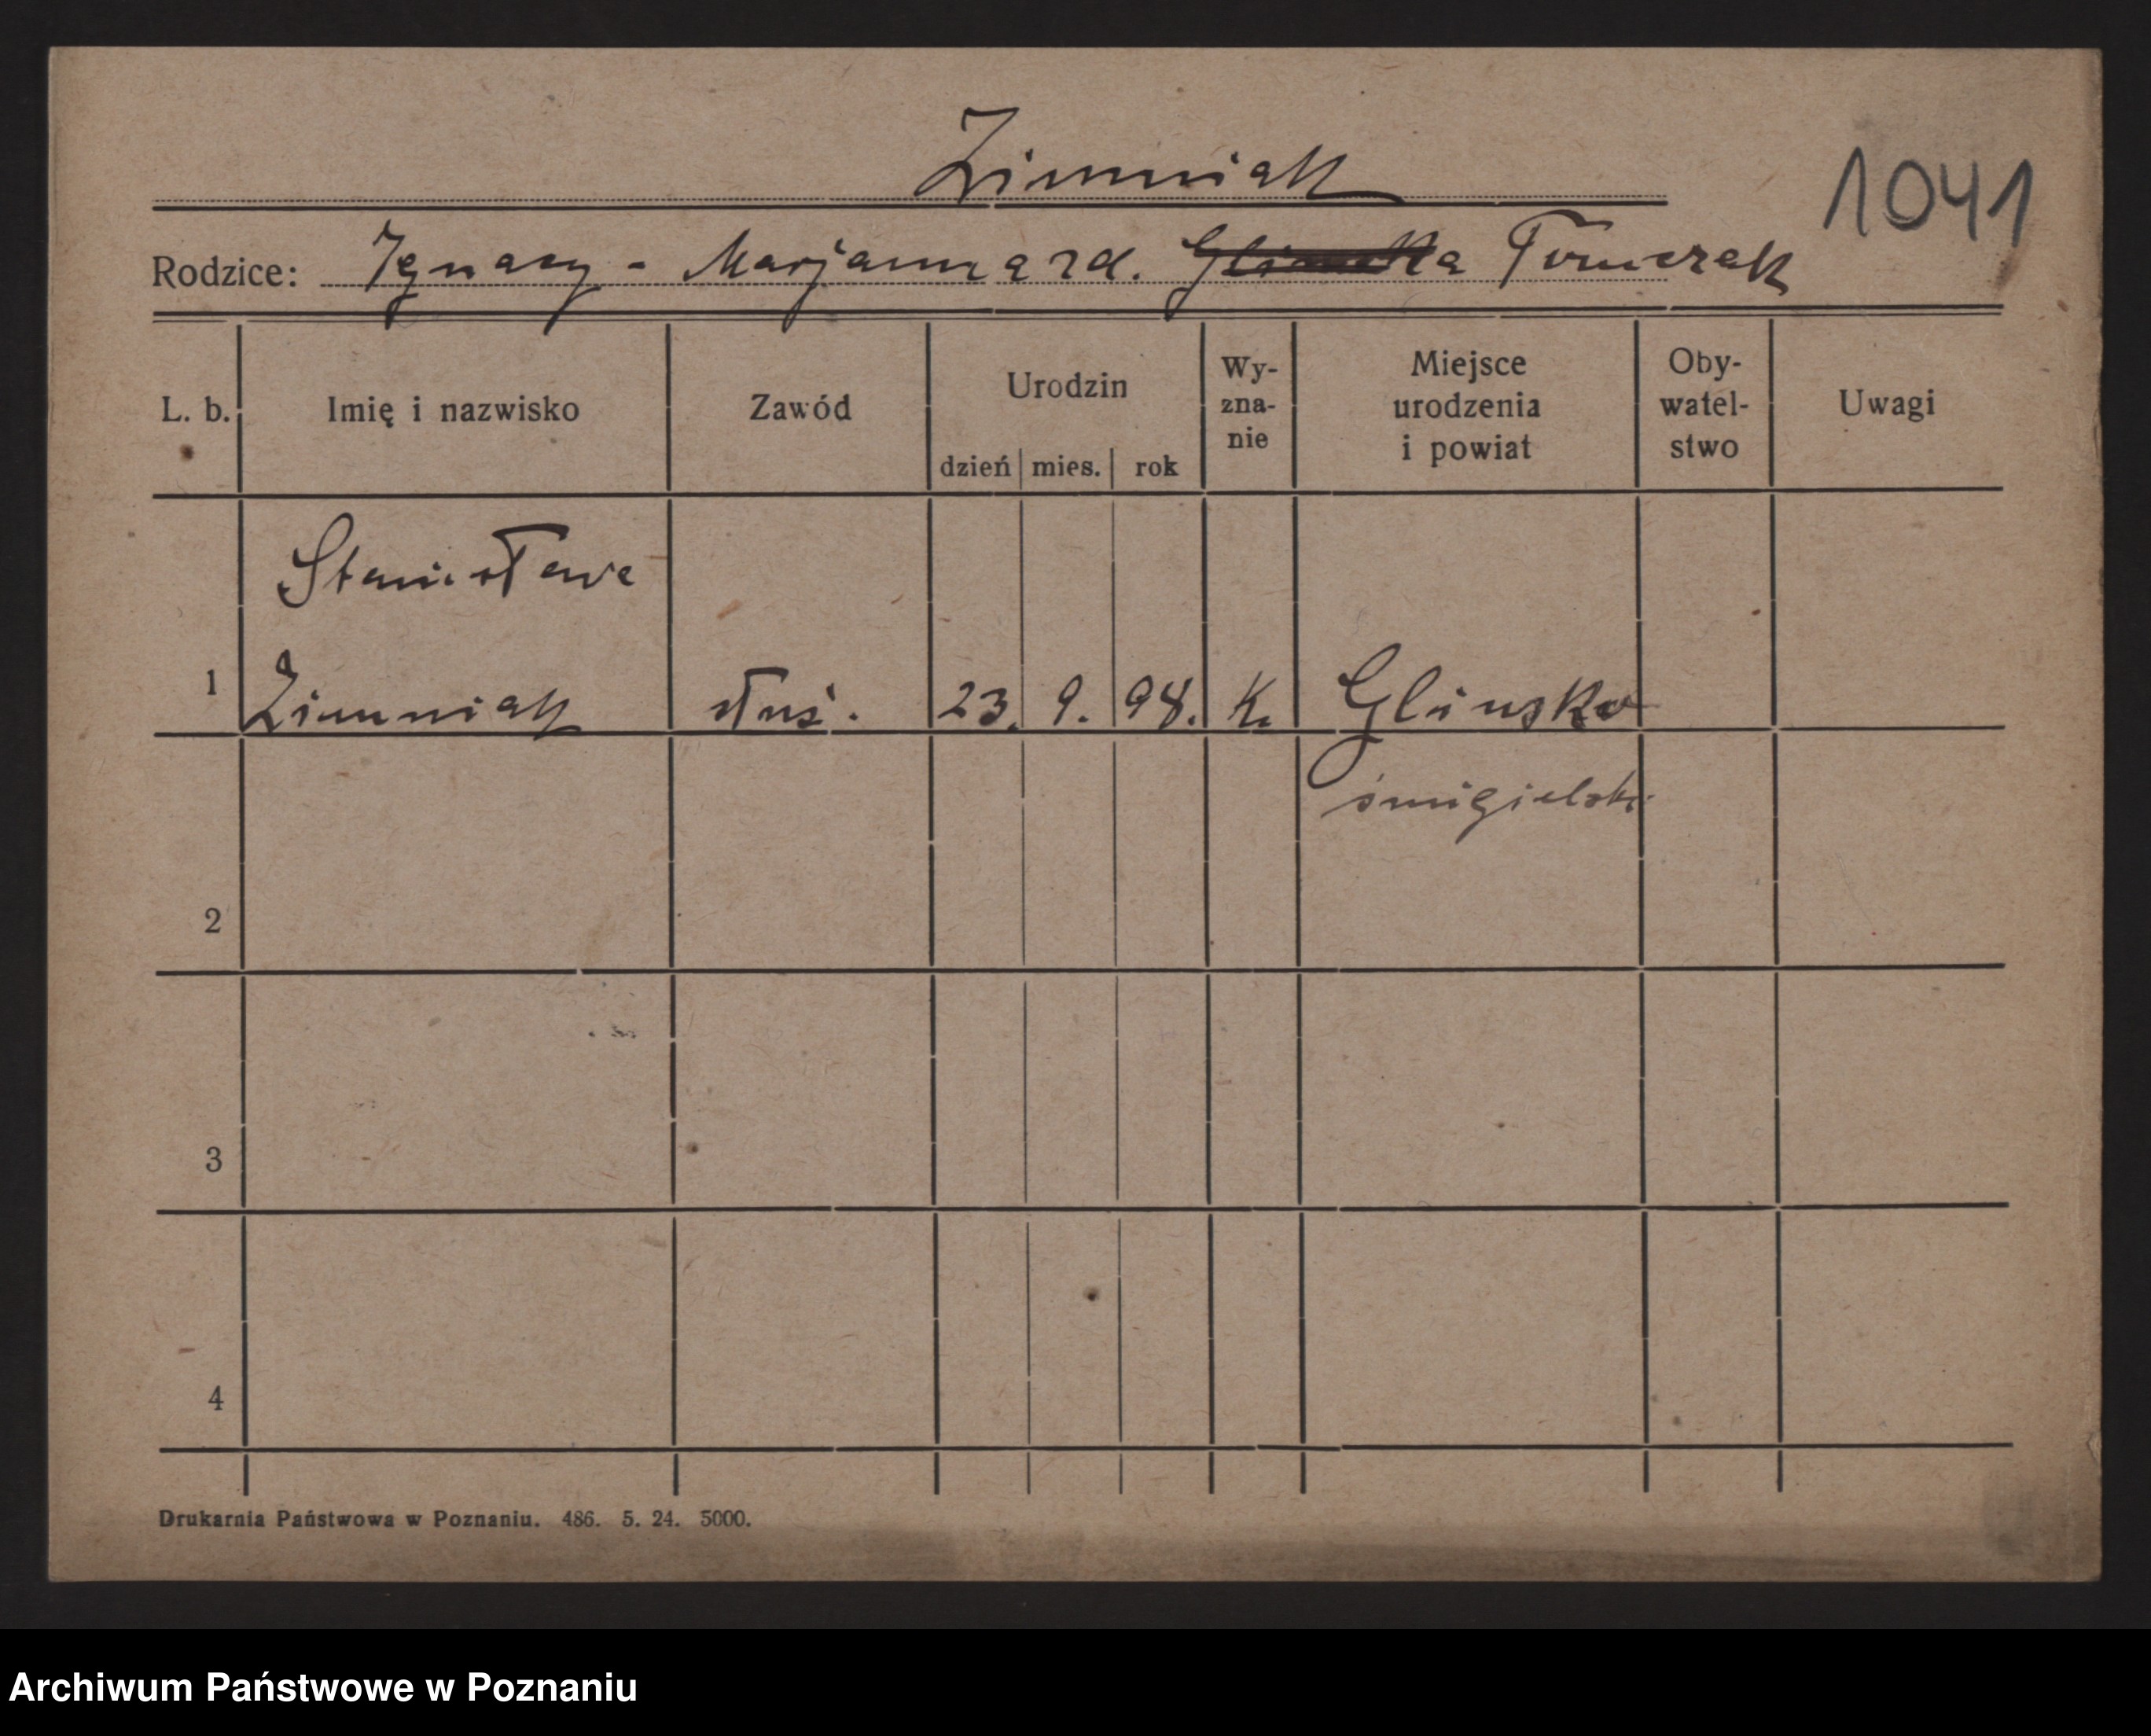 Zimniak
1041
Rodzice: Ignacy - Marjanna zd. Tomczak
L. b. Imię i nazwisko Zawód Urodzin dzień mies. rok Wy-zna-nie Miejsce urodzenia i powiat Oby-watel-stwo Uwagi
Stanisława
1 Zimniak służ. 23. 9. 98. K. Glinsko
śmigielski
2
3
4
Drukarnia Państwowa w Poznaniu. 486. 5. 24. 5000.
Archiwum Państwowe w Poznaniu